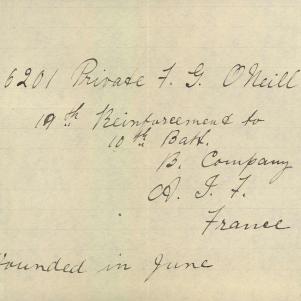 6201 Private F. G. O'Neill
19th Reinforcement to
10th Batt.
B. Company
A. I. F.
France
ounded in June